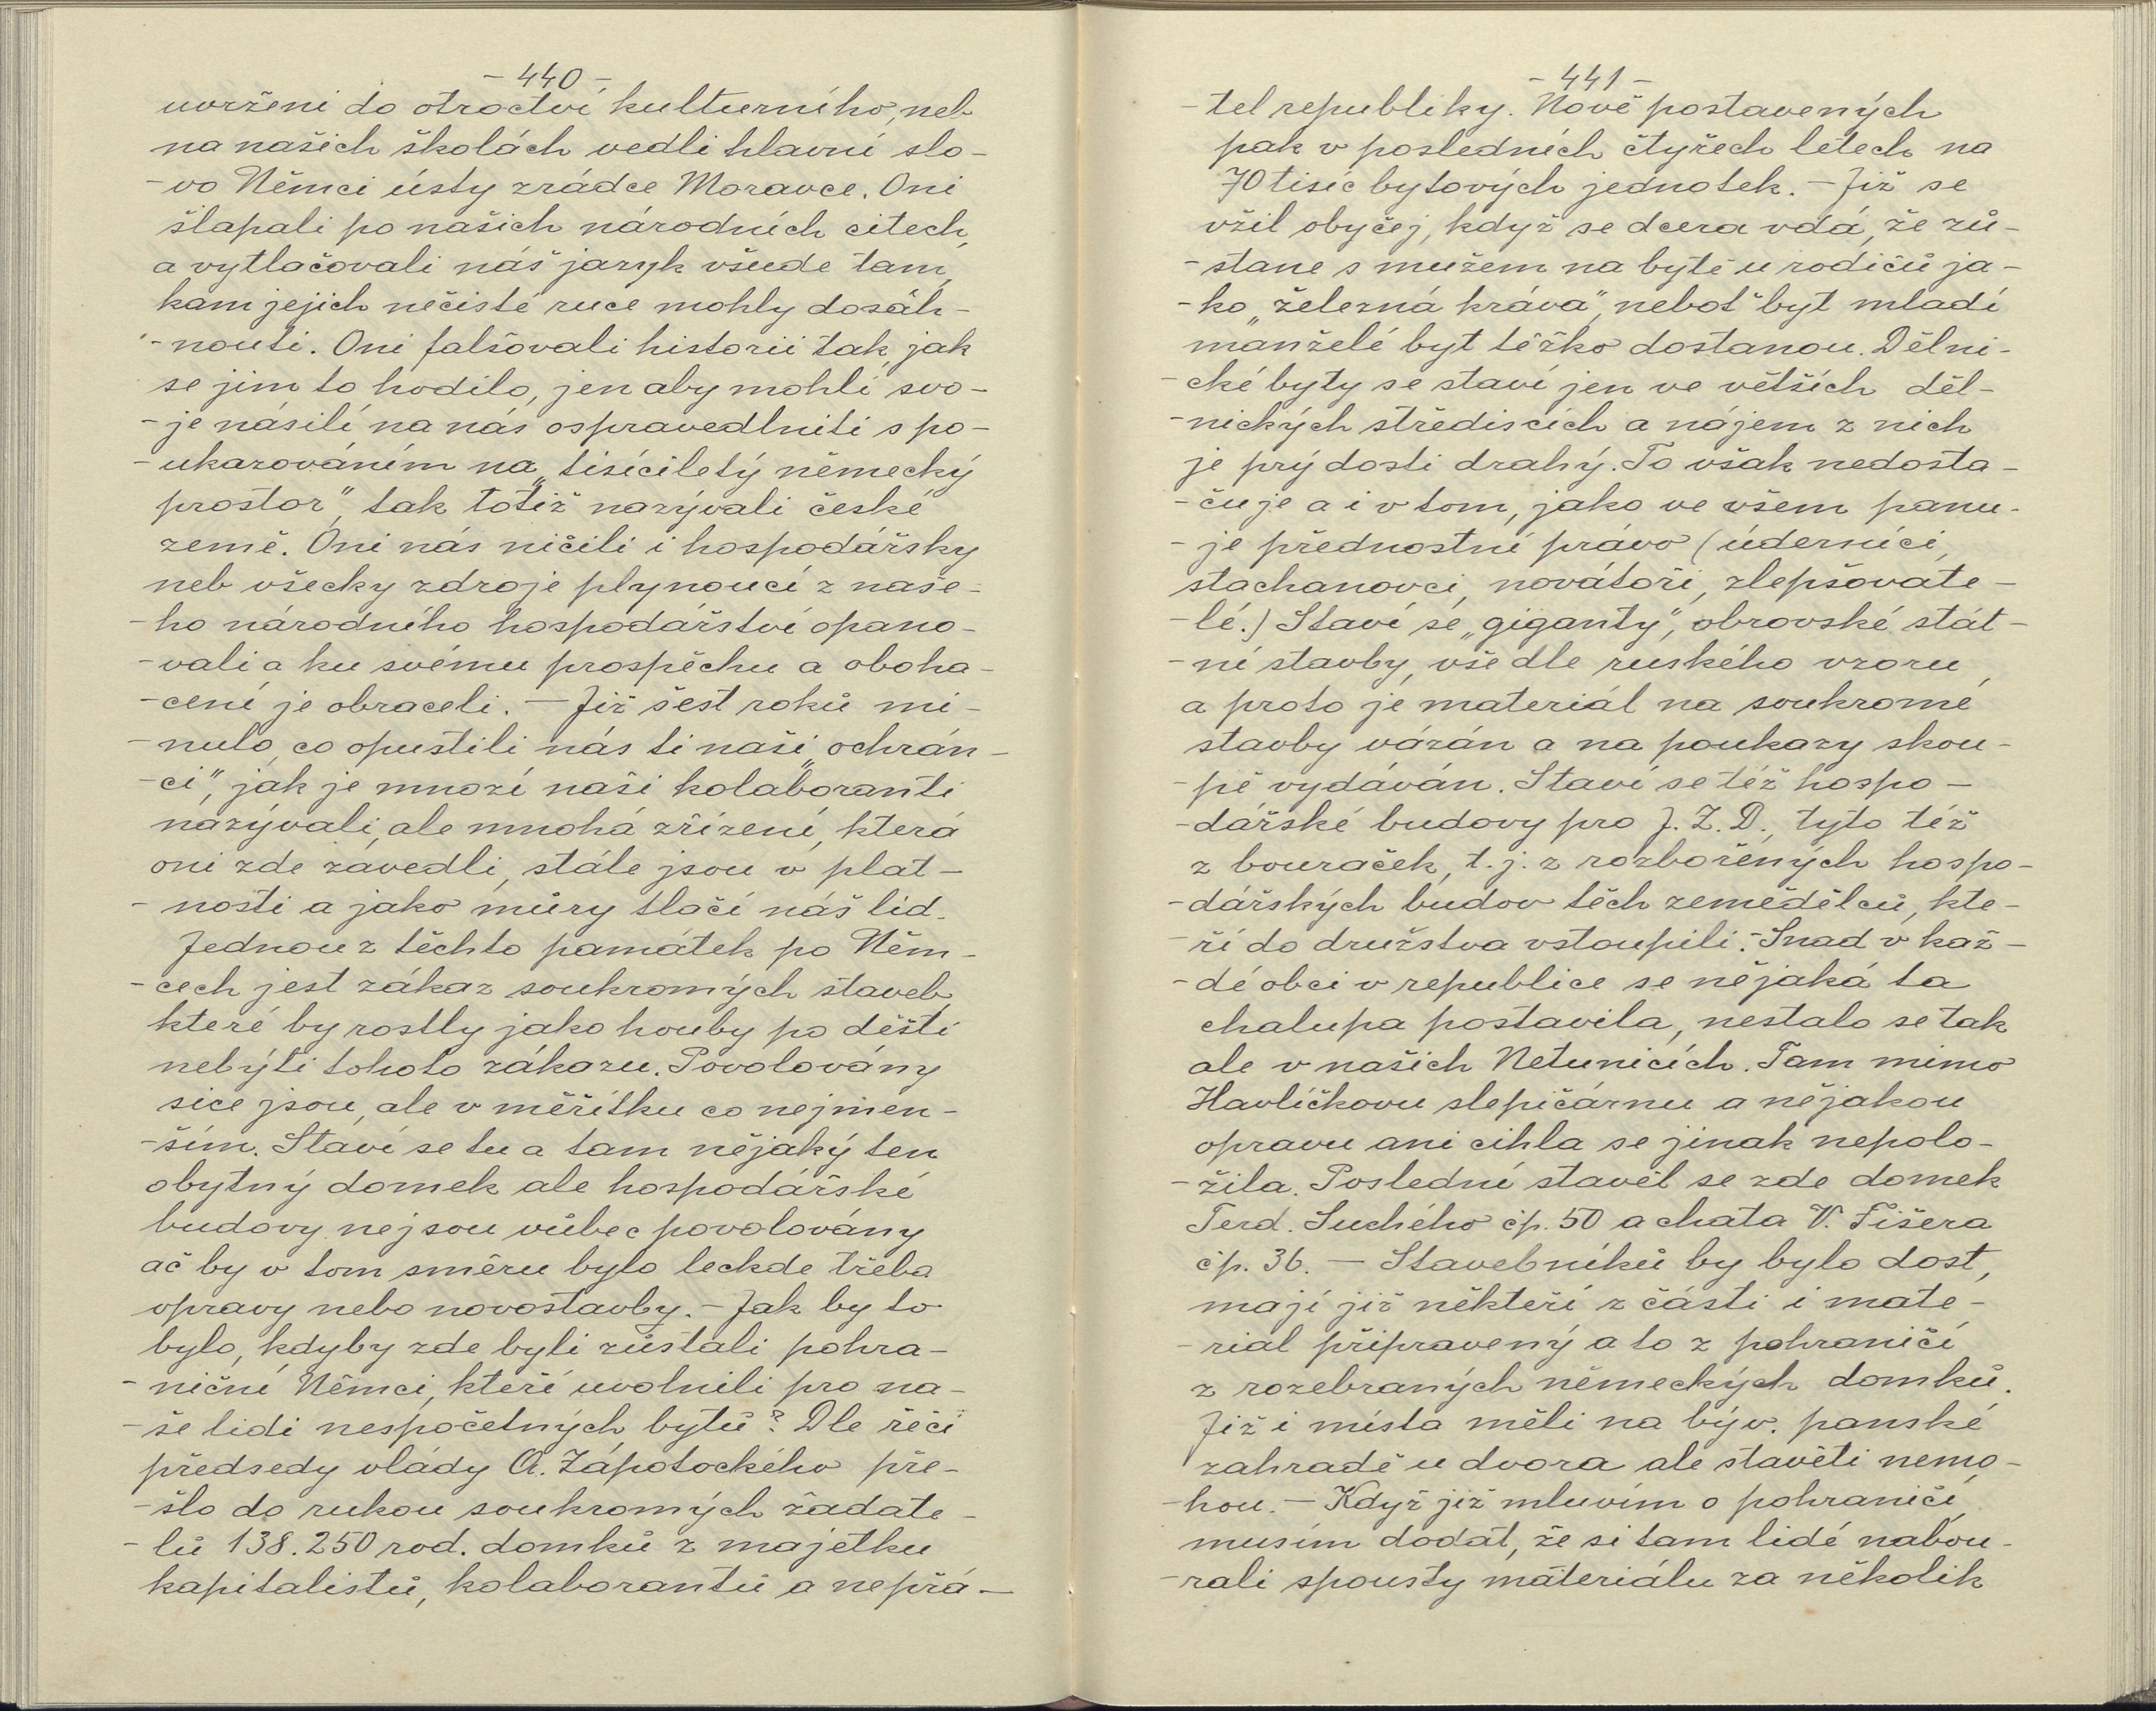 - 440 -
uvrženi do otroctví kulturního, neb
na našich školách vedli hlavní slo-
-vo Němci ústy zrádce Moravce. Oni
šlapali po našich národních citech,
a vytlačovali náš jazyk všude tam,
kam jejich nečisté ruce mohly dosáh-
-nouti. Oni falšovali historii tak, jak
se jim to hodilo, jen aby mohli svo-
-je násilí na nás ospravedlniti s po-
-ukazováním na „tisíciletý německý
prostor", tak totiž nazývali české
země. Oni nás ničili i hospodářsky
neb všecky zdroje plynoucí z naše-
-ho národního hospodářství opano-
-vali a ku svému prospěchu a oboha-
-cení je obraceli. — Již šest roků mi-
-nulo, co opustili nás ti naši „ochrán-
-ci", jak je mnozí naši kolaboranti
nazývali, ale mnohá zřízení, která
oni zde zavedli, stále jsou v plat-
-nosti a jako můry tlačí náš lid.
Jednou z těchto památek po Něm-
-cech jest zákaz soukromých staveb
které by rostly jako houby po dešti
nebýti tohoto zákazu. Povolovány
sice jsou, ale v měřítku co nejmen-
-ším. Staví se tu a tam nějaký ten
obytný domek ale hospodářské
budovy nejsou vůbec povolovány
ač by v tom směru bylo leckde třeba
opravy nebo novostavby. - Jak by to
bylo, kdyby zde byli zůstali pohra-
-niční Němci, kteří uvolnili pro na-
-še lidi nespočetných bytů? Dle řeči
předsedy vlády A. Zápotockého pře-
-šlo do rukou soukromých žadate-
-lů 138.250 rod. domků z majetku
kapitalistů, kolaborantů a nepřá-
- 441 -
-tel republiky. Nově postavených
pak v posledních čtyřech létech na
70 tisíc bytových jednotek. - Již se
vžil obyčej, když se dcera vdá, že zů-
-stane s mužem na bytě u rodičů ja-
-ko „železná kráva", neboť byt mladí
manželé byt těžko dostanou. Dělni-
-cké byty se staví jen ve větších děl-
-nických střediscích a nájem z nich
je prý dosti drahý. To však nedosta-
-čuje a i v tom, jako ve všem panu-
-je přednostní právo (úderníci,
stachanovci, novátoři, zlepšovate-
-lé.) Staví se „giganty", obrovské stát-
-ní stavby, vše dle ruského vzoru,
a proto je materiál na soukromé
stavby vázán a na poukazy skou-
-pě vydáván. Staví se též hospo-
-dářské budovy pro J.Z.D., tyto též
z bouraček, t.j. z rozbořených hospo-
-dářských budov těch zemědělců, kte-
-ří do družstva vstoupili. - Snad v kaž-
-dé obci v republice se nějaká ta
chalupa postavila, nestalo se tak
ale v našich Netunicích. Tam mimo
Havlíčkovu slepičárnu a nějakou
opravu ani cihla se jinak nepolo-
-žila. Poslední stavěl se zde domek
Ferd. Suchého čp. 50 a chata V. Fišera
čp. 36. — Stavebníků by bylo dost,
mají již někteří z části i mate-
-rial připravený a to z pohraničí
z rozebraných německých domků.
Již i místa měli na býv. panské
zahradě u dvora ale stavěti nemo-
-hou. - Když již mluvím o pohraničí,
musím dodat, že si tam lidé nabou-
-rali spousty materiálu za několik